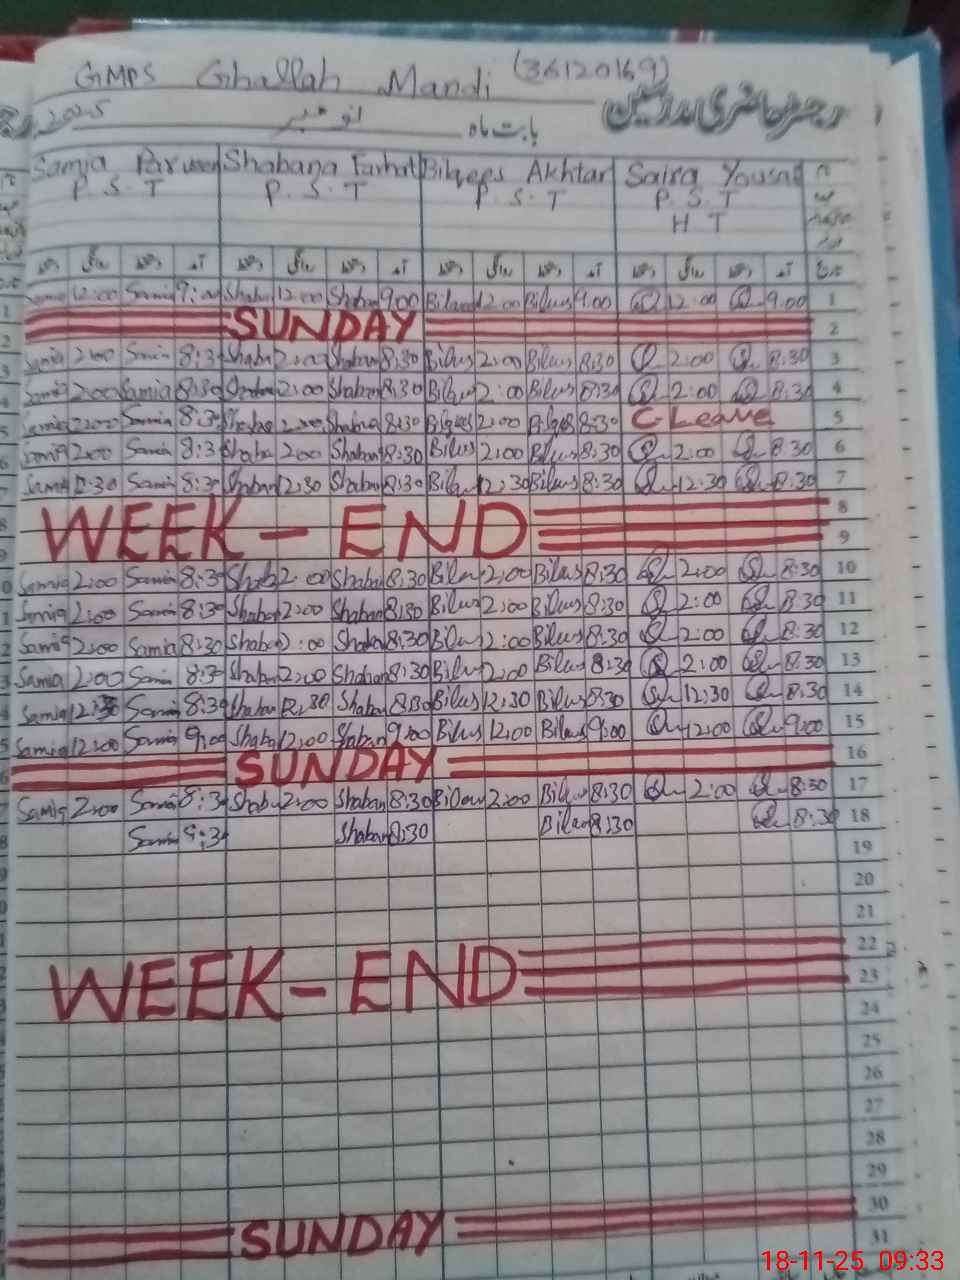 GMPS Ghallah Mandi (36120169)
رجسٹر حاضری مدرسین
بابت ماہ نومبر 2025
Samia Parveen Shabana Farhat Bilqees Akhtar Saira Yousaf
P. S. T P. S. T P. S. T P. S. T
H T
12:00 Samia 9:00 Shaban 12:00 Shaban 9:00 Bilqes 12:00 Bilqes 9:00 12:00 9:00 1
SUNDAY 2
Samia 2:00 Samia 8:30 Shaban 2:00 Shaban 8:30 Bilqes 2:00 Bilqes 8:30 2:00 8:30 3
Samia 2:00 Samia 8:30 Shaban 2:00 Shabana 8:30 Bilqes 2:00 Bilqes 8:30 2:00 8:30 4
Samia 2:00 Samia 8:30 Shabana 2:00 Shabana 8:30 Bilqees 2:00 Bilqes 8:30 C-Leave 5
Samia 2:00 Samia 8:30 Shaban 2:00 Shaban 8:30 Bilqes 2:00 Bilqes 8:30 2:00 8:30 6
Samia 12:30 Samia 8:30 Shaban 12:30 Shaban 8:30 Bilqes 12:30 Bilqes 8:30 12:30 8:30 7
WEEK - END 8
9
Samia 2:00 Samia 8:30 Shaban 2:00 Shaban 8:30 Bilqes 2:00 Bilqes 8:30 2:00 8:30 10
Samia 2:00 Samia 8:30 Shaban 2:00 Shaban 8:30 Bilqes 2:00 Bilqes 8:30 2:00 8:30 11
Samia 2:00 Samia 8:30 Shaban 2:00 Shaban 8:30 Bilqes 2:00 Bilqes 8:30 2:00 8:30 12
Samia 2:00 Samia 8:30 Shaban 2:00 Shaban 8:30 Bilqes 2:00 Bilqes 8:30 2:00 8:30 13
Samia 12:30 Samia 8:30 Shaban 12:30 Shaban 8:30 Bilqes 12:30 Bilqes 8:30 12:30 8:30 14
Samia 12:00 Samia 9:00 Shaban 12:00 Shaban 9:00 Bilqes 12:00 Bilqes 9:00 12:00 9:00 15
SUNDAY 16
Samia 2:00 Samia 8:30 Shaban 2:00 Shaban 8:30 Bilqes 2:00 Bilqes 8:30 2:00 8:30 17
Samia 8:30 Shaban 8:30 Bilqes 8:30 8:30 18
19
20
21
WEEK - END 22
23
24
25
26
27
28
29
SUNDAY 30
31
18-11-25 09:33